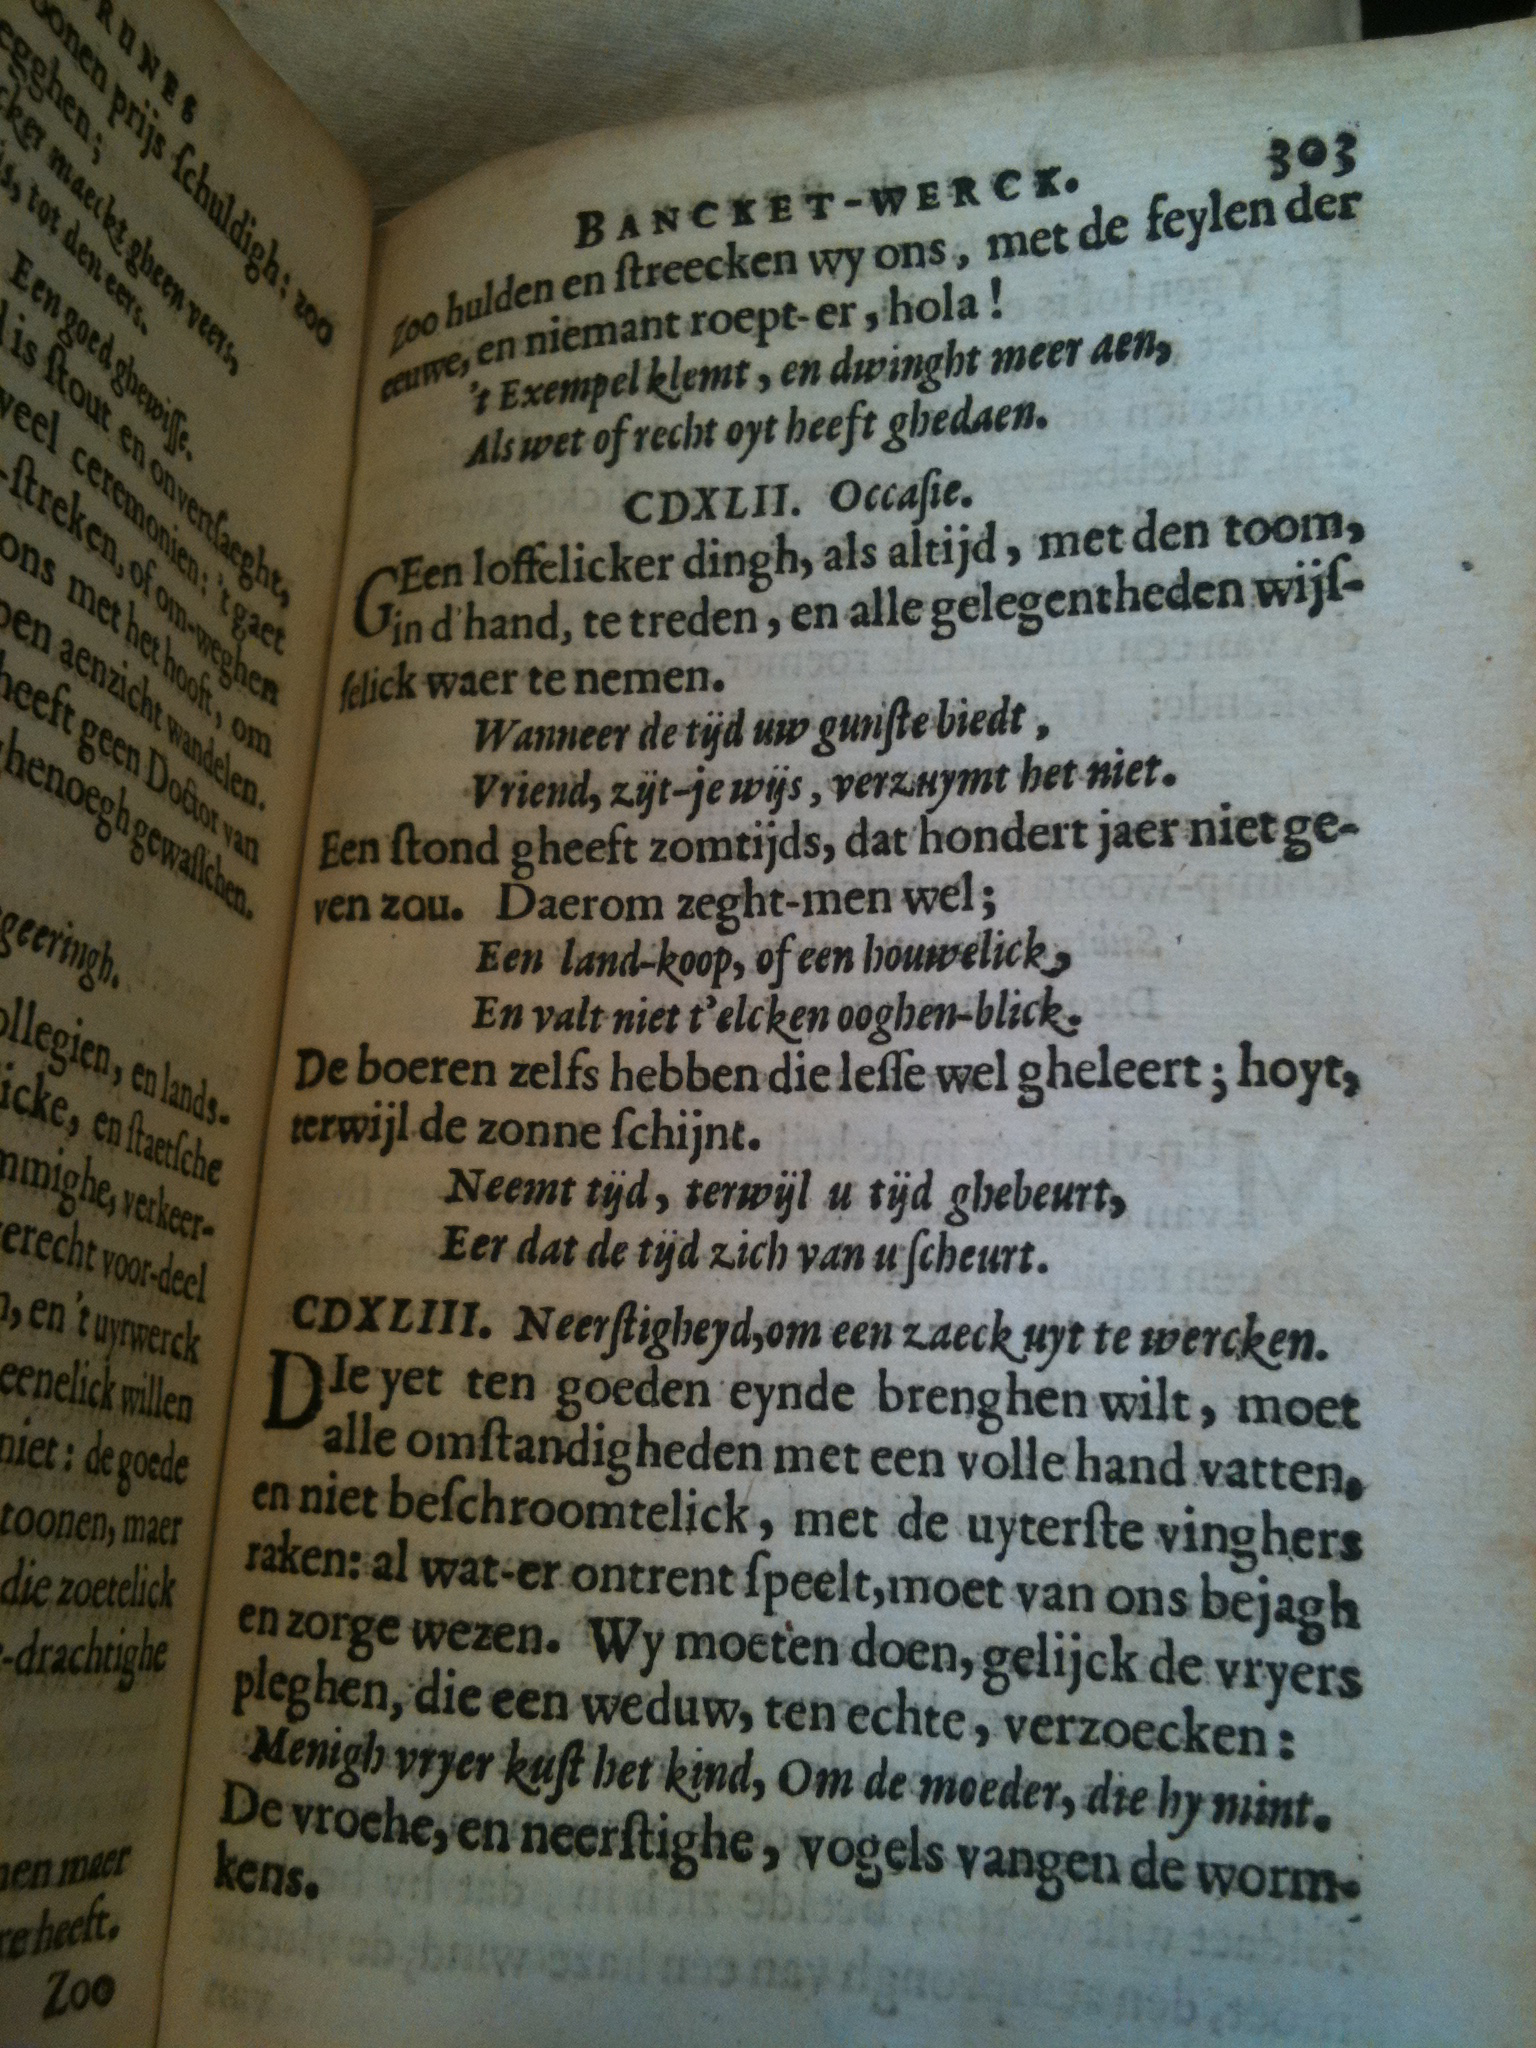 RUNES
oonen prijs ſchuldigh: zoo
egghen;
cker maeckt gheen veers,
is, tot den eers.
Een goed ghewiſſe.
is ſtout en onverſaeght,
veel ceremonien: 't gaet
-ſtreken, of om-weghen
ons met het hooft, om
pen aenzicht wandelen.
heeft geen Doctor van
ghenoegh gewaſſchen.
geeringh.
ollegien, en lands-
icke, en ſtaetſche
mmighe, verkeer-
erecht voor-deel
n, en 't uyrwerck
eenelick willen
niet: de goede
toonen, maer
die zoetelick
-drachtighe
nen maer
re heeft.
Zoo
BANCKET-WERCK. 303
Zoo hulden en ſtreecken wy ons, met de feylen der
eeuwe, en niemant roept-er, hola!
't Exempel klemt, en dwinght meer aen,
Als wet of recht oyt heeft ghedaen.
CDXLII. Occaſie.
GEen loffelicker dingh, als altijd, met den toom,
in d'hand, te treden, en alle gelegentheden wijſ-
ſelick waer te nemen.
Wanneer de tijd uw gunſte biedt,
Vriend, zijt-je wijs, verzuymt het niet.
Een ſtond gheeft zomtijds, dat hondert jaer niet ge-
ven zou. Daerom zeght-men wel;
Een land-koop, of een houwelick,
En valt niet t'elcken ooghen-blick.
De boeren zelfs hebben die leſſe wel gheleert; hoyt,
terwijl de zonne ſchijnt.
Neemt tijd, terwijl u tijd ghebeurt,
Eer dat de tijd zich van u ſcheurt.
CDXLIII. Neerſtigheyd, om een zaeck uyt te wercken.
DIe yet ten goeden eynde brenghen wilt, moet
alle omſtandigheden met een volle hand vatten,
en niet beſchroomtelick, met de uyterſte vinghers
raken: al wat-er ontrent ſpeelt, moet van ons bejagh
en zorge wezen. Wy moeten doen, gelijck de vryers
pleghen, die een weduw, ten echte, verzoecken:
Menigh vryer kuſt het kind, Om de moeder, die hy mint.
De vroehe, en neerſtighe, vogels vangen de worm-
kens.